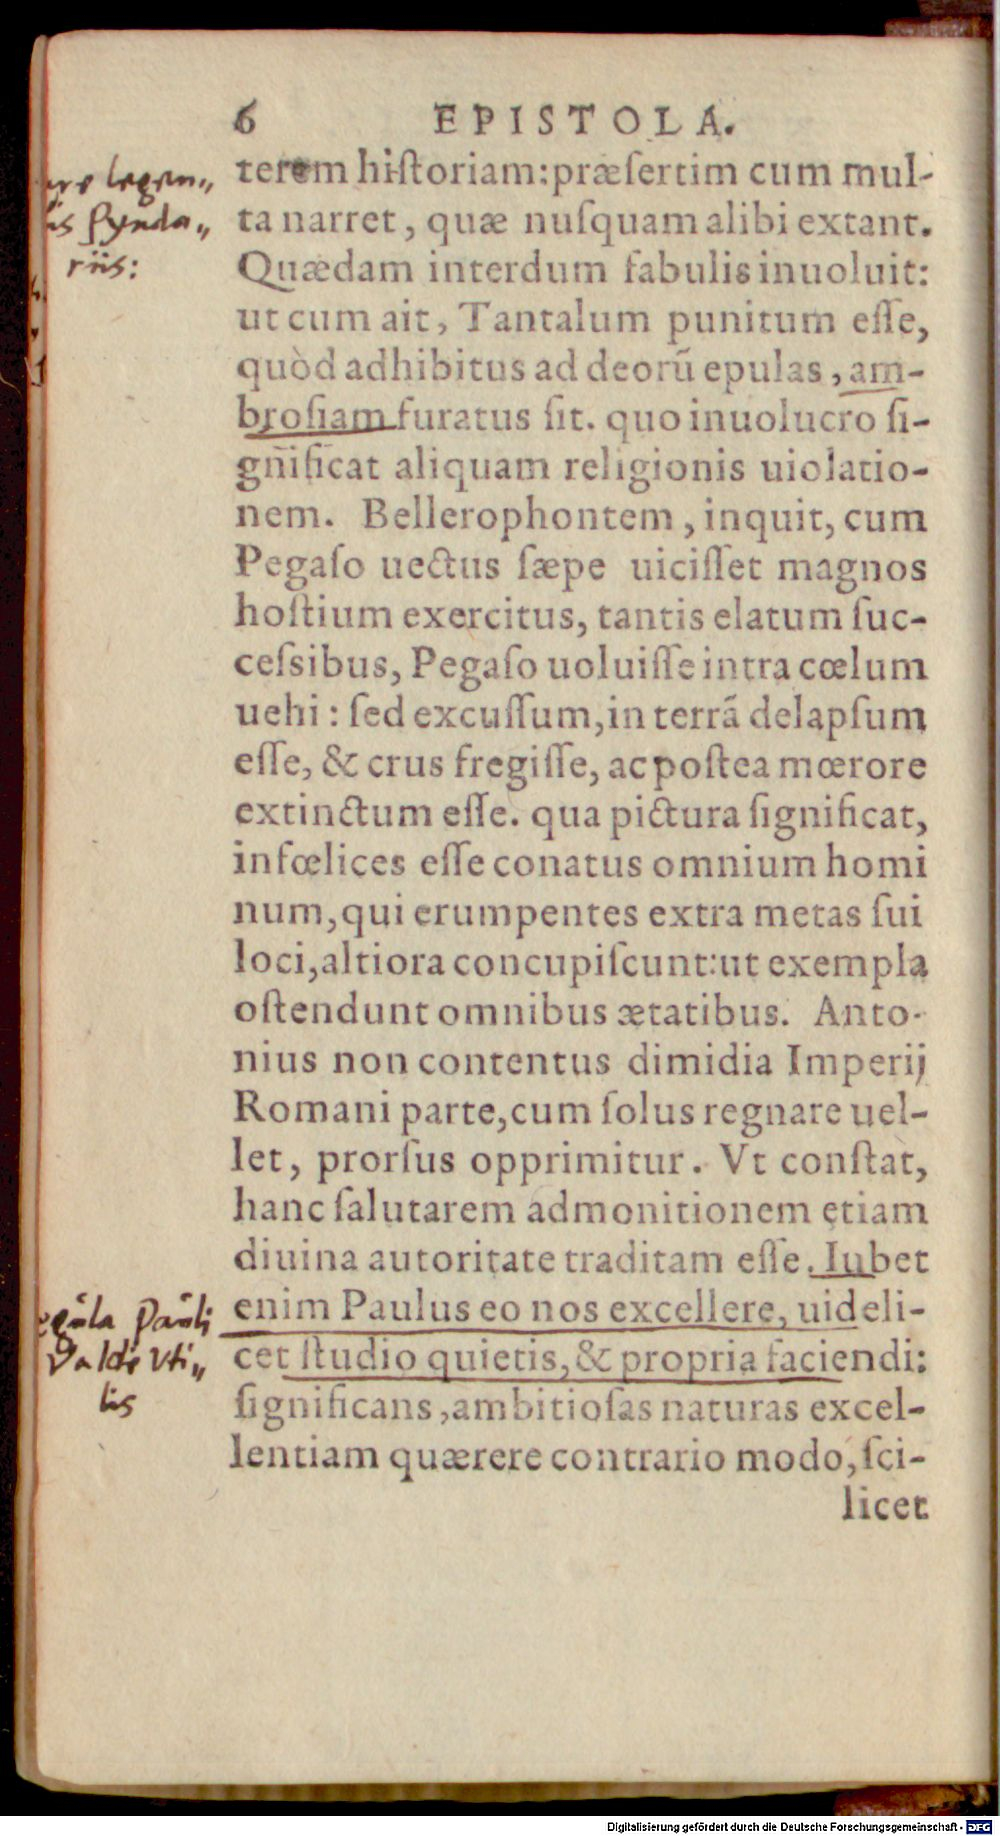 6 EPISTOLA.
terem hiſtoriam:præſertim cum mul-
ta narret, quæ nuſquam alibi extant.
Quædam interdum fabulis inuoluit:
ut cum ait, Tantalum punitum eſſe,
quòd adhibitus ad deorũ epulas, am-
broſiam furatus ſit. quo inuolucro ſi-
gnificat aliquam religionis uiolatio-
nem. Bellerophontem, inquit, cum
Pegaſo uectus ſæpe uiciſſet magnos
hoſtium exercitus, tantis elatum ſuc-
ceſsibus, Pegaſo uoluiſſe intra cœlum
uehi: ſed excuſſum, in terrã delapſum
eſſe, & crus fregiſſe, ac poſtea mœrore
extinctum eſſe. qua pictura ſignificat,
infœlices eſſe conatus omnium homi
num, qui erumpentes extra metas ſui
loci, altiora concupiſcunt: ut exempla
oſtendunt omnibus ætatibus. Anto-
nius non contentus dimidia Imperij
Romani parte, cum ſolus regnare uel-
let, prorſus opprimitur. Vt conſtat,
hanc ſalutarem admonitionem etiam
diuina autoritate traditam eſſe. Iubet
enim Paulus eo nos excellere, uideli-
cet ſtudio quietis, & propria faciendi:
ſignificans, ambitioſas naturas excel-
lentiam quærere contrario modo, ſci-
licet
legen„
Pynda„
riis:
Pauli
Valde vti„
lis
Digitalisierung gefördert durch die Deutsche Forschungsgemeinschaft - DFG